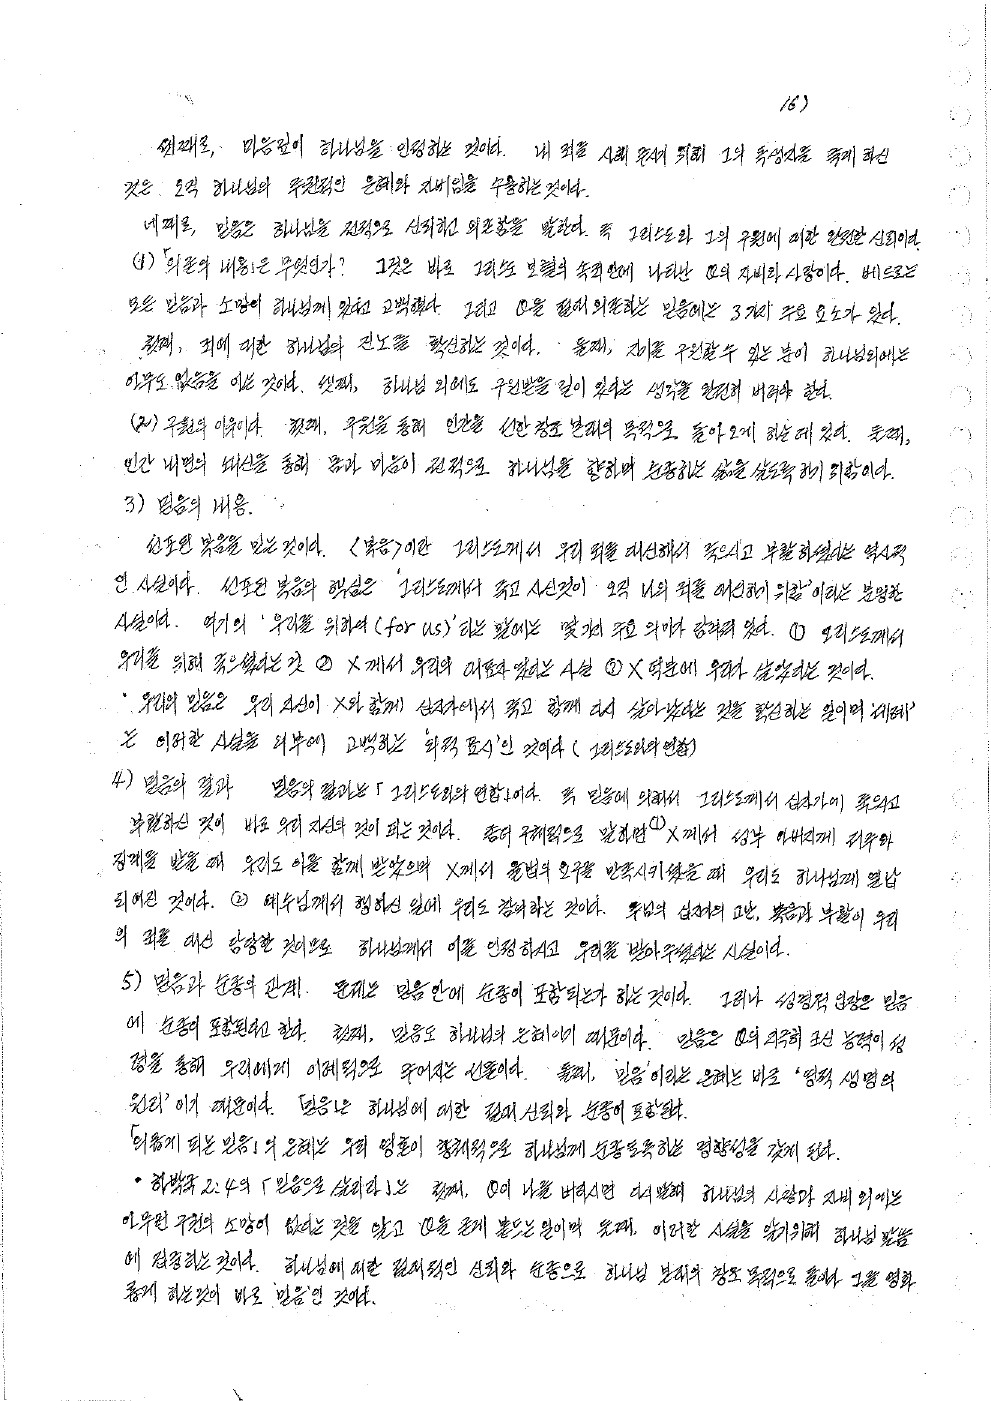 16)
셋째로, 마음깊이 하나님을 인정하는 것이다. 내 죄를 사해 주시기 위해 그의 독생자를 죽게 하신
것은 오직 하나님의 주권적인 은혜와 자비임을 수용하는 것이다.
네째로, 믿음은 하나님을 전적으로 신뢰하고 의존함을 말한다. 즉 그리스도와 그의 구원에 대한 완전한 신뢰이다.
(1) 「의존의 내용」은 무엇인가? 그것은 바로 그리스도 보혈의 속죄안에 나타난 Θ의 자비와 사랑이다. 베드로는
모든 믿음과 소망이 하나님께 있다고 고백했다. 그리고 Θ을 절대 의존하는 믿음에는 3가지 주요 요소가 있다.
첫째, 죄에 대한 하나님의 진노를 확신하는 것이다. 둘째, 자기를 구원할 수 있는 분이 하나님외에는
아무도 없음을 아는 것이다. 셋째, 하나님 외에도 구원받을 길이 있다는 생각을 완전히 버려야 한다.
(2) 구원의 이유이다. 첫째, 구원을 통해 인간을 선한 창조 본래의 목적으로 돌아오게 하는데 있다. 둘째,
인간 내면의 쇄신을 통해 몸과 마음이 전적으로 하나님을 향하며 순종하는 삶을 살도록 하기 위함이다.
3) 믿음의 내용.
선포된 복음을 믿는 것이다. <복음>이란 그리스도께서 우리 죄를 대신해서 죽으시고 부활하셨다는 역사적
인 사실이다. 선포된 복음의 핵심은 '그리스도께서 죽고 사신것이 오직 나의 죄를 대신하기 위함'이라는 분명한
사실이다. 여기의 '우리를 위하여(for us)'라는 말에는 몇가지 주요 의미가 함축되 있다. ① 그리스도께서
우리를 위해 죽으셨다는 것 ② X께서 우리의 대표가 되셨다는 사실 ③ X 덕분에 우리가 살았다는 것이다.
· 우리의 믿음은 우리 자신이 X와 함께 십자가에서 죽고 함께 다시 살아났다는 것을 확신하는 일이며 '세례'
는 이러한 사실을 외부에 고백하는 '외적 표시'인 것이다 (그리스도와의 연합)
4) 믿음의 결과 믿음의 결과는 「그리스도와의 연합」이다. 즉 믿음에 의해서 그리스도께서 십자가에 죽으시고
부활하신 것이 바로 우리 자신의 것이 되는 것이다. 좀더 구체적으로 말하면 ① X께서 성부 아버지께 저주와
징계를 받을 때 우리도 이를 함께 받았으며 X께서 율법의 요구를 만족시키셨을 때 우리도 하나님께 열납
되어진 것이다. ② 예수님께서 행하신 일에 우리도 참여하는 것이다. 주님의 십자가 고난, 죽음과 부활이 우리
의 죄를 대신 담당한 것이므로 하나님께서 이를 인정하시고 우리를 받아주셨다는 사실이다.
5) 믿음과 순종의 관계. 문제는 믿음 안에 순종이 포함되는가 하는 것이다. 그러나 성경적 입장은 믿음
에 순종이 포함된다고 한다. 첫째, 믿음도 하나님의 은혜이기 때문이다. 믿음은 Θ의 지극히 크신 능력이 성
경을 통해 우리에게 이례적으로 주어지는 선물이다. 둘째, '믿음'이라는 은혜는 바로 '영적 생명의
원리'이기 때문이다. 「믿음」은 하나님에 대한 절대 신뢰와 순종이 포함된다.
「의롭게 되는 믿음」의 은혜는 우리 영혼이 총체적으로 하나님께 순종토록하는 경향성을 갖게 된다.
· 하박국 2:4의 「믿음으로 살리라」는 첫째, Θ이 나를 버리시면 다시말해 하나님의 사랑과 자비 외에는
아무런 구원의 소망이 없다는 것을 알고 Θ을 굳게 붙드는 일이며 둘째, 이러한 사실을 알기위해 하나님 말씀
에 집중하는 것이다. 하나님에 대한 절대적인 신뢰와 순종으로 하나님 본래의 창조 목적으로 돌아가 그를 영화
롭게 하는것이 바로 '믿음'인 것이다.